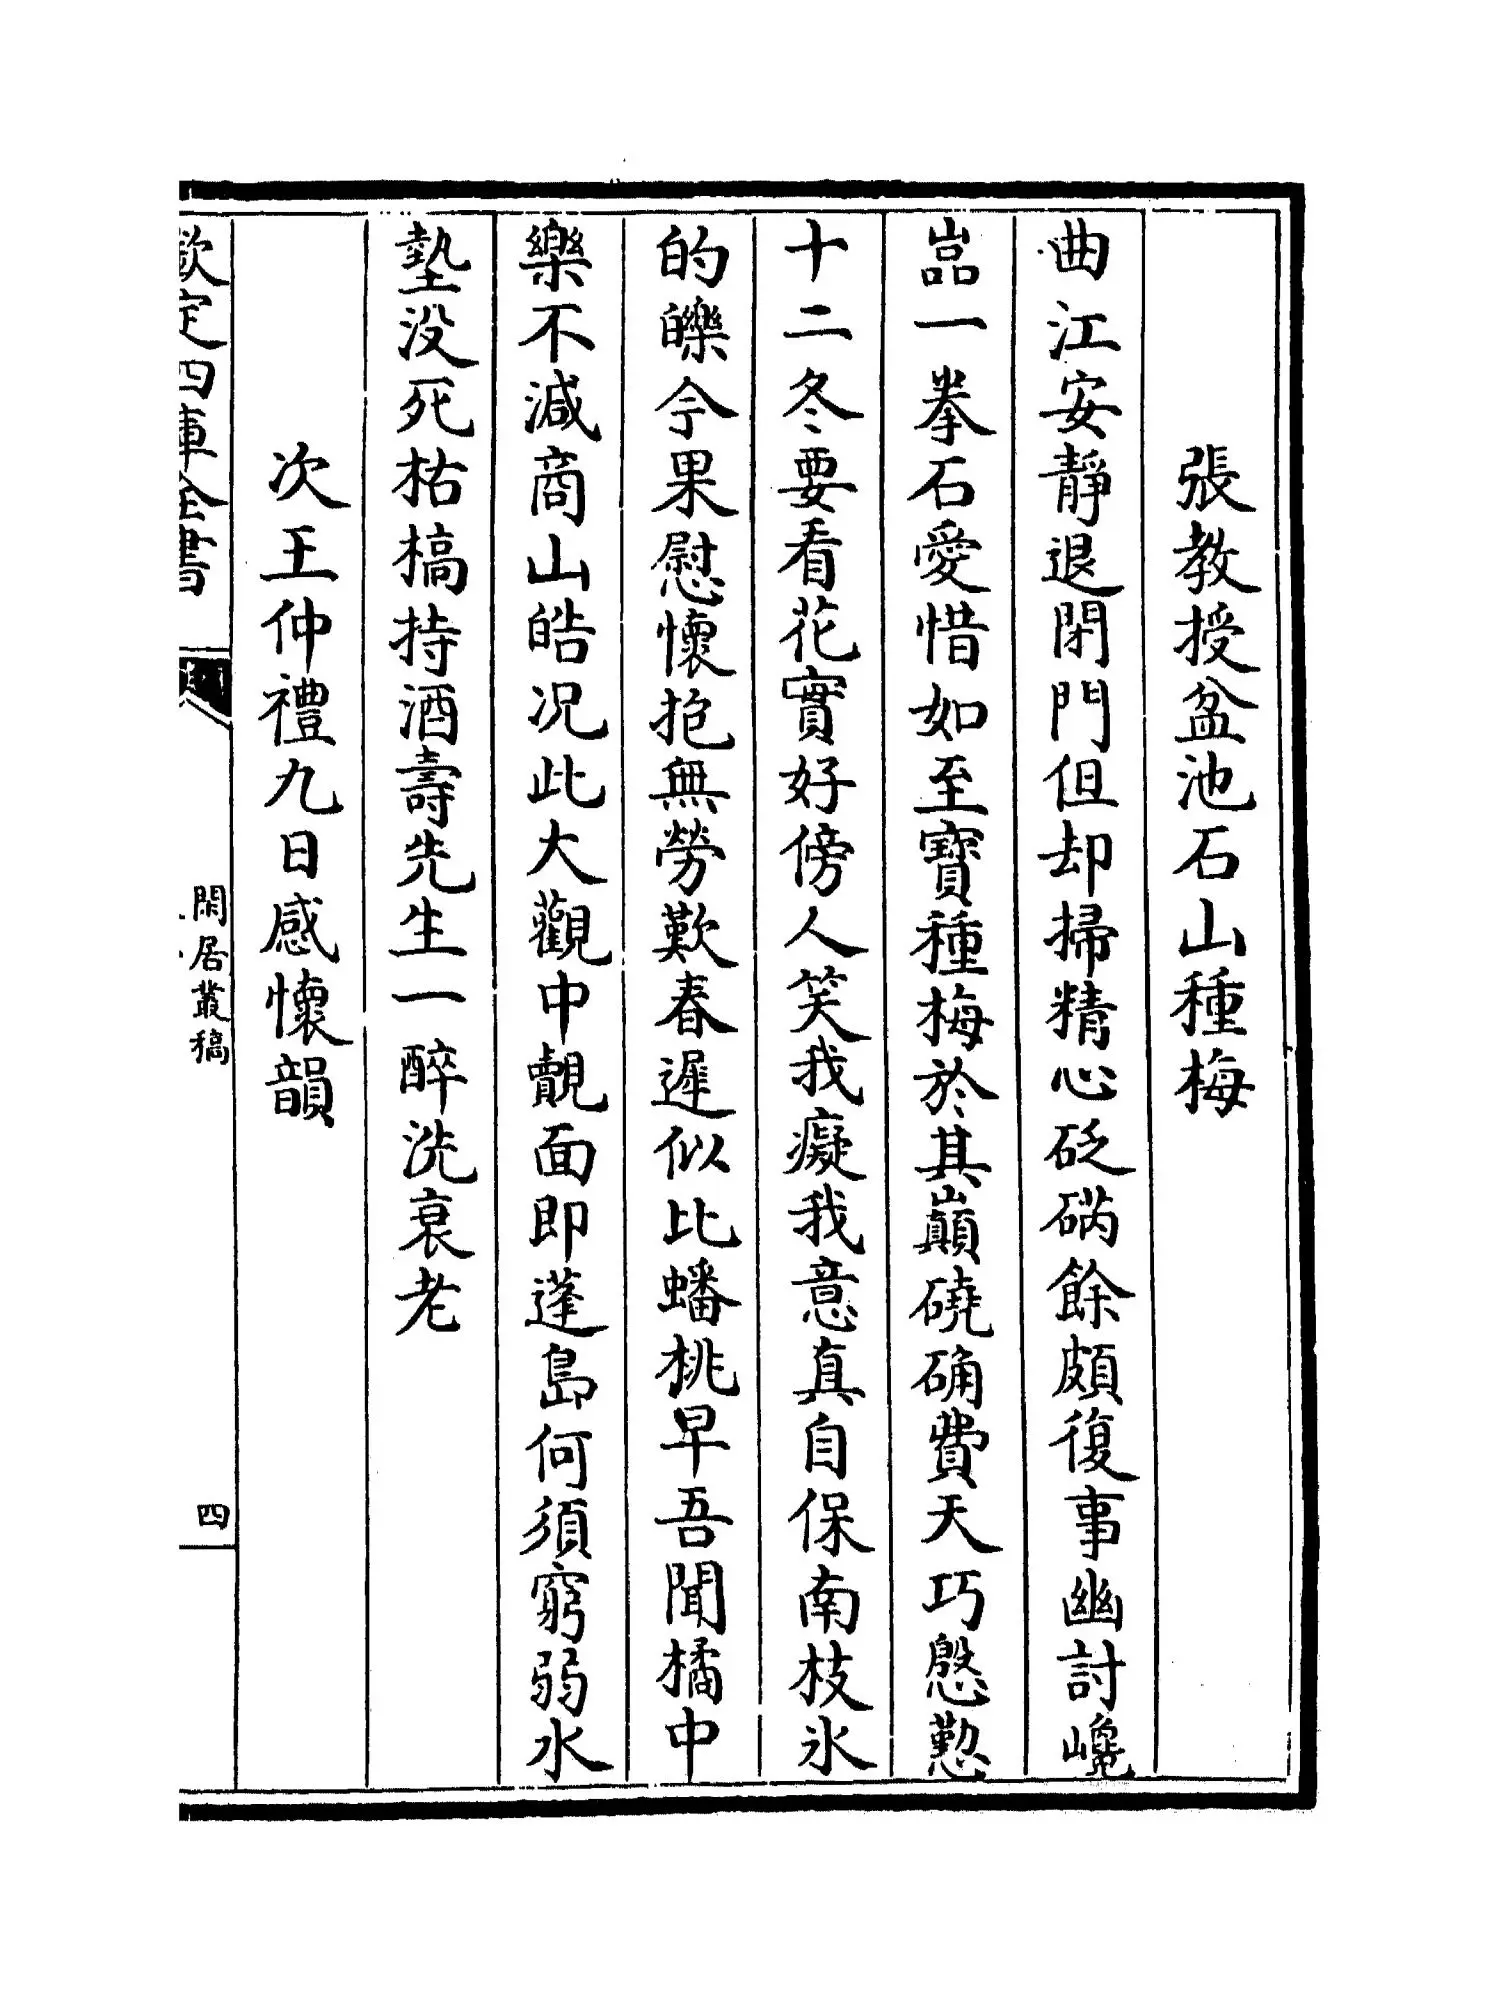 張教授盆池石山種梅
曲江安靜退閉門但却掃精心砭㾗餘頗復事幽討巉
嵓一拳石愛惜如至寶種梅於其巔磽确費天巧慇懃
十二冬要看花實好傍人笑我癡我意真自保南枝氷
的皪今果慰懷抱無勞歎春遲似比蟠桃早吾聞橘中
樂不減商山皓况此大觀中覿面即蓬島何須窮弱水
墊没死枯槁持酒壽先生一醉洗衰老
次王仲禮九日感懷韻
欽定四庫全書
閑居叢稿
四